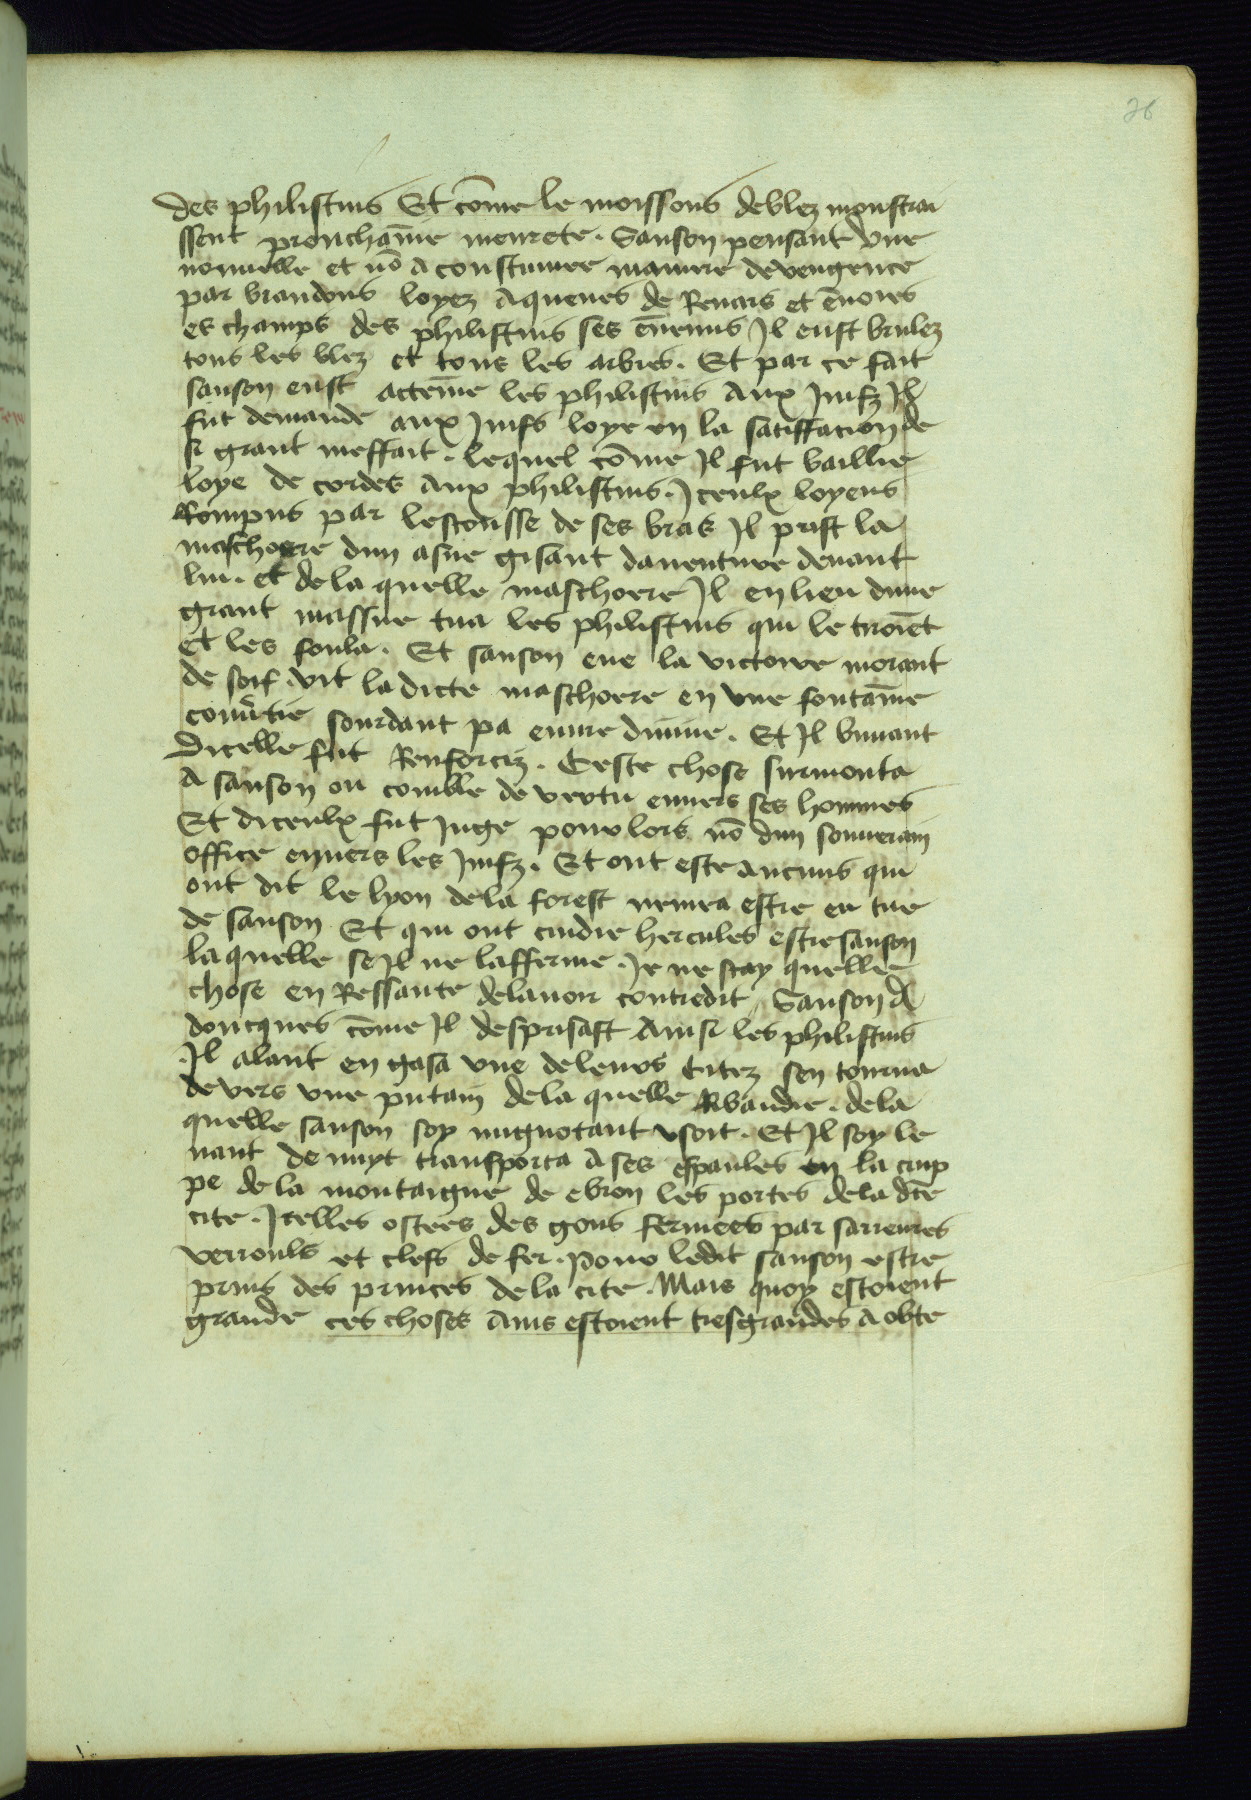 26
des philistins Et cõme le moissons deblez monstrai
ssent prouchaīne meurete. Sanson pensant vne
nouuelle et nõ a coustumee maniere devengence
par brandons loyez aqueues de Renars et ēuoies
es champs des philistins ses ēnemis Jl eust brulez
tous les blez et tous les arbres. Et par ce fait
sanson eust acteīne les philistins aux Juifz Jl
fut demande aux Juifs loye en la satiffacion de
si grant meffait. lequel cõme Jl fut baillie
loye de cordes aux philistins. Jceulx loyens
Rompus par lescousse de ses bras Jl prist la
maschoere dun asne gisant dauenture deuant
lui. et de la quelle maschoere Jl en lieu dune
grant massue tua les philistins qui le tiroiēt
et les foula. Et sanson eue la victoire morant
de soif vit la dicte maschoere en vne fontaīne
couūtie sourdant pa euure diuine. Et Jl buuant
Dicelle fut Renforciz. Ceste chose surmonta
A sanson ou comble de vertu enuers ses hommes
Et diceulx fut Juge pour lors nõ dun souuerain
office enuers les Juifz. Et ont este aucuns qui
ont dit le lyon de la forest nemea estre en tue
de sanson Et qui ont cuidie hercules estre sanson
la quelle se Jl ne lafferme. Je ne scay quelle
chose en Ressante delauoir contredit Sanson A
doncques cõme Jl desprisast Ainsi les philistins
Jl alant en gasa vne deleurs Citez sen tourna
devers vne putain de la quelle Ribaudie. de la
quelle sanson soy mignotant vsoit. Et Jl soy le
uant de nuyt transporta A ses espaules en la crup
pe de la montaigne de ebron les portes de la dc̄e
cite. Jcelles ostees des gons fermees par sarreures
verrouls et clefs de fer. pour ledit sanson estre
prins des princes de la cite. Mais quoy estoient
grande ces choses Ains estoient tresgrandes A obte